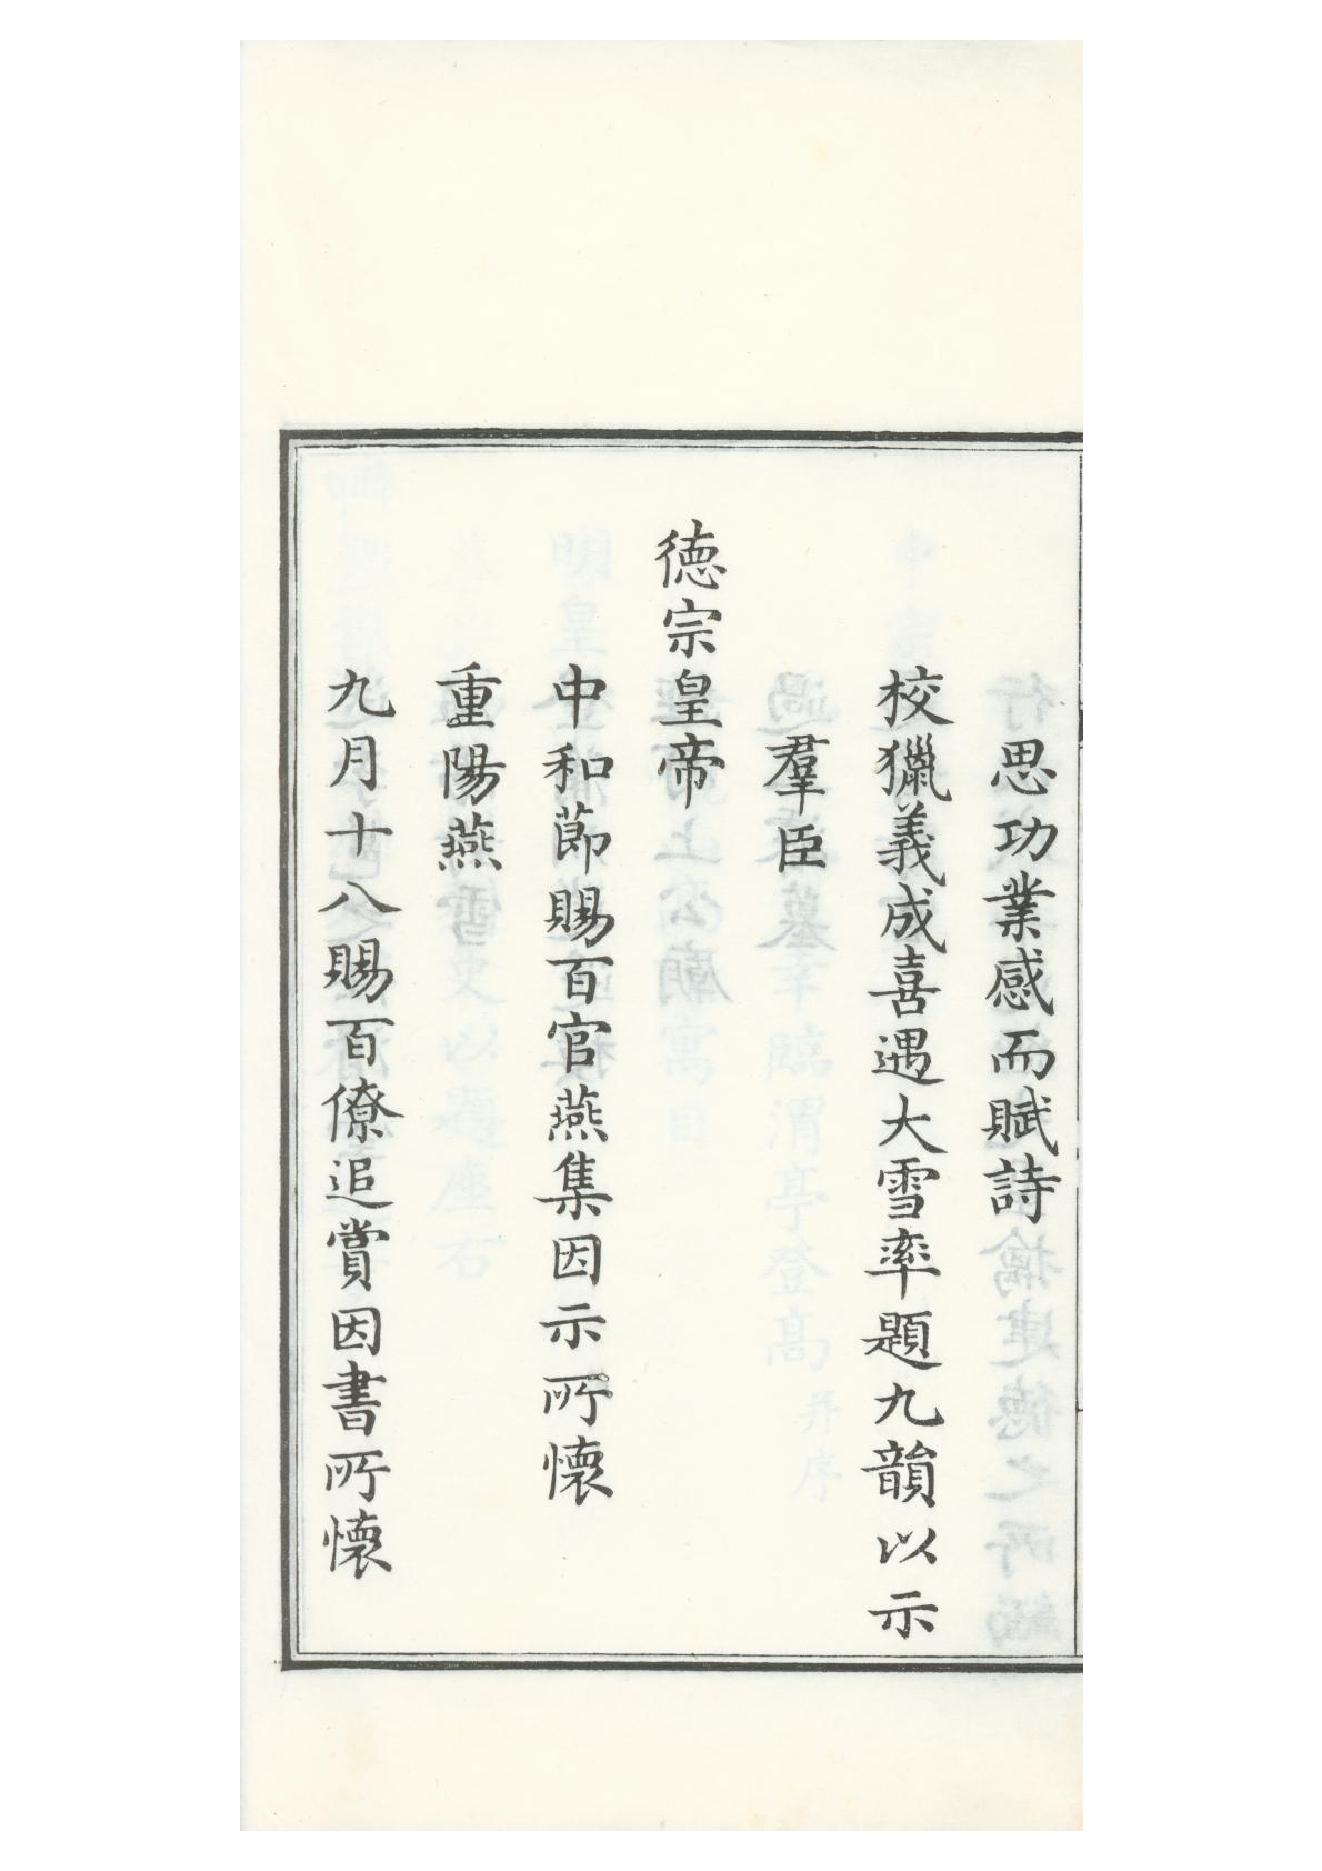 思功業感而賦詩
校獵義成喜遇大雪率題九韻以示
羣臣
德宗皇帝
中和節賜百官燕集因示所懷
重陽燕
九月十八賜百僚追賞因書所懷